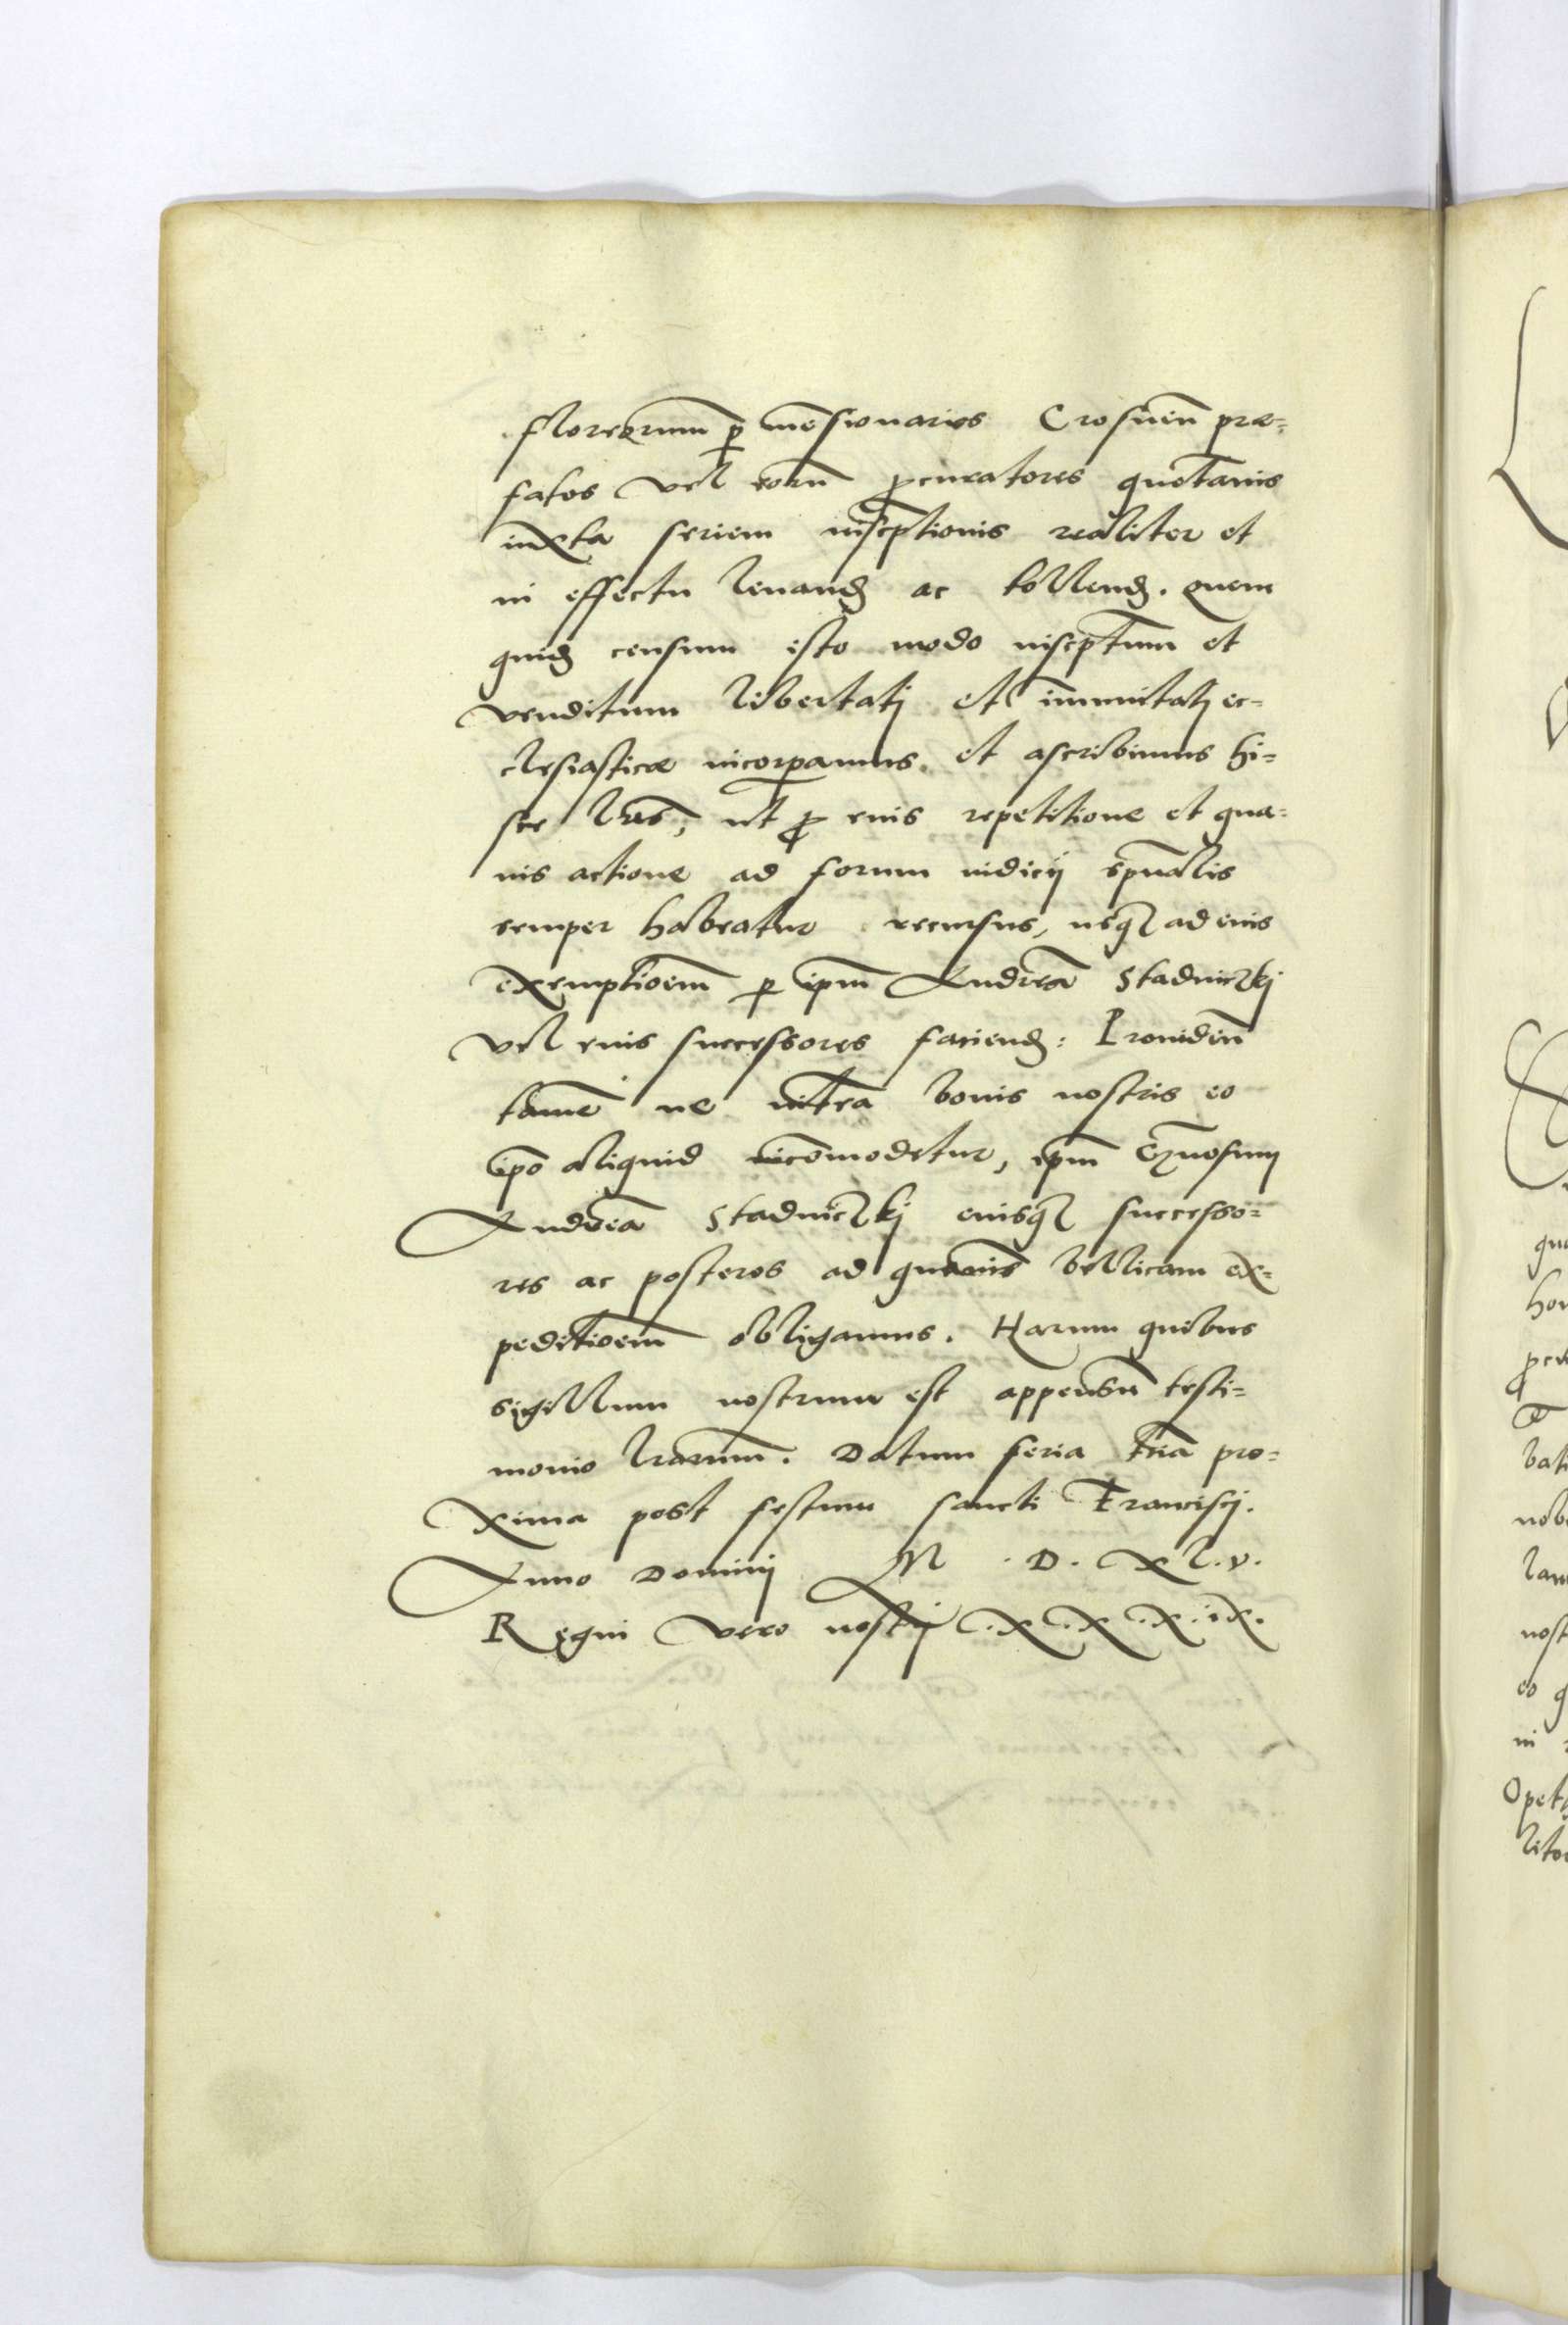 florenorum p̱ mẽsionarios Crosneñ præ=
fatos vel eorũ ꝓcuratores quotañis
iuxta seriem inscp̃tionis realiter et
in effectu leuanḏ ac tollenḏ. Quem
quiḏ censum isto modo inscp̃tum et
venditum libertatj et im̃unitatj ec=
clesiasticæ incorpamus et ascribimus hi=
sce lr̃as, ut ꝓ eius repetitione et qua=
uis actione ad forum iudicij spũalis
semper habeatur recursus, usq₃ ad eius
exemptioem̃ p̱ ip̃m Andreã Stadniczkj
vel eius successores facienḏ: Prouideñ
tamẽ ne vltra bonis nostris eo
ip̃o aliquid incõmodetur, ip̃m Gñosum
Andreã Stadniczkj eiusq₃ successo=
res ac posteros ad quamuis bellicam ex=
peditioem̃ obligamus. Harum quibus
sigillum nostrum est appensũ testi=
monio lr̃arum. Datum feria tr̃ia pro=
xima post festum sancti Franciscj.
Anno Dominj M . D . X L . v .
Regni vero nostrj . X . X . X . iX .
qua
hon
bati
nob
nost
eo q
in
Opet